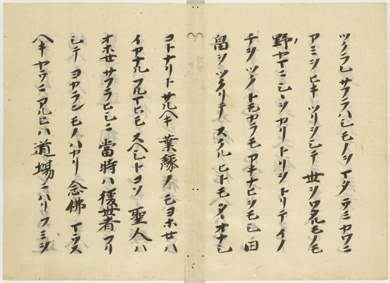 ツクラレサフラハシモノヲマタウミカワニ
アミヲヒキツリヲシテ世ヲワタルモノモ
野ヤマニシヽヲカリトリヲトリテイノ
チヲツクトモカラモアキナヒヲモシ田
畠ヲツクリテスクルヒトモタヽオナシ
コトナリトサルヘキ業縁ノモヨホセハ
イカナルフルマヒモスヘシトコソ聖人ハ
オホセサフラヒシニ當時ハ後世者フリ
シテヨカランモノハカリ念佛マフス
ヘキヤウニアルヒハ道場ニハリフミヲシ